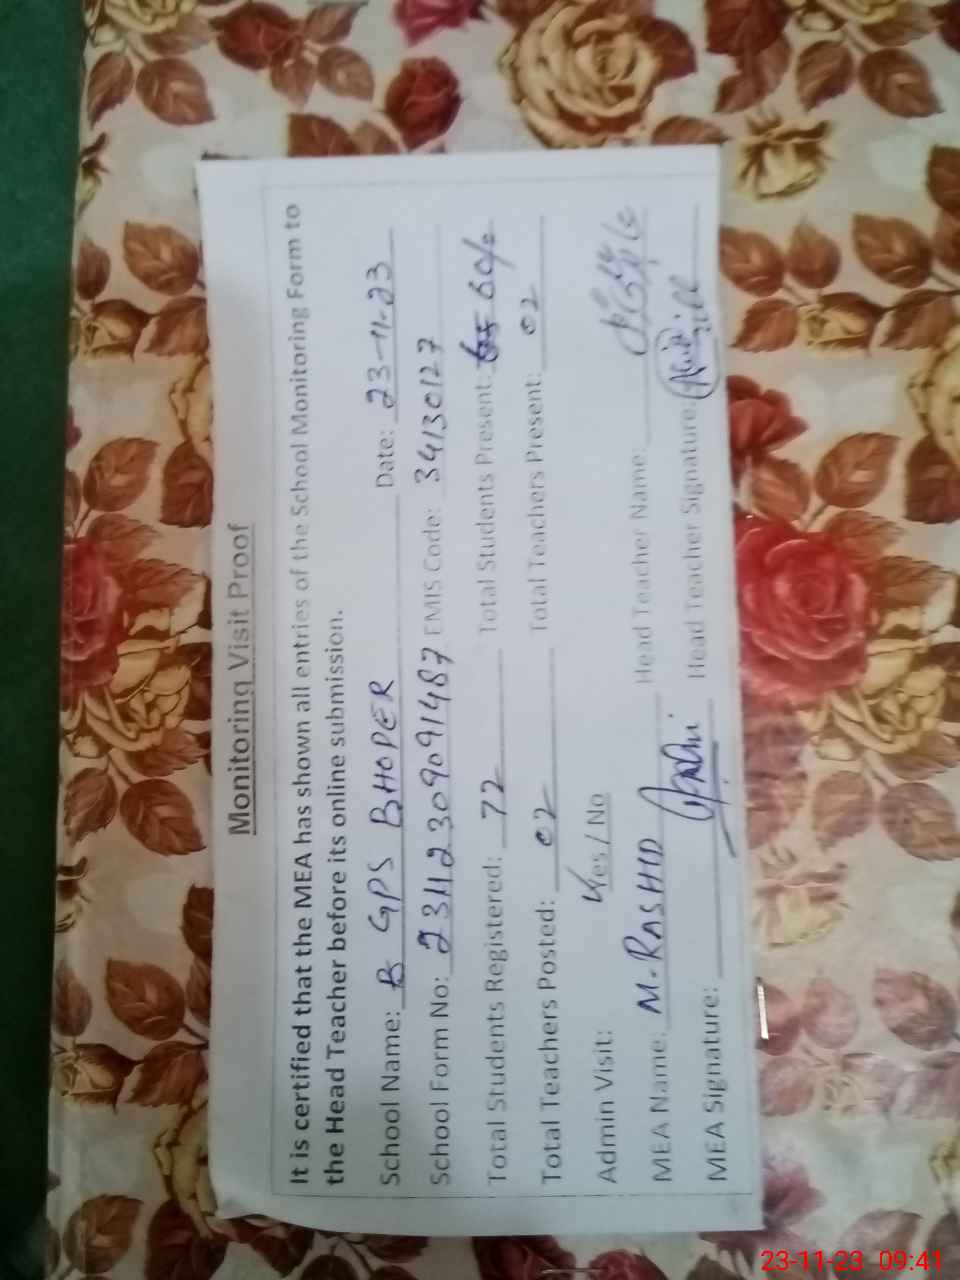 Monitoring Visit Proof
It is certified that the MEA has shown all entries of the School Monitoring Form to
the Head Teacher before its online submission.
School Name: B GPS BHOPER Date: 23-11-23
School Form No: EMIS Code: 34130127
Total Students Registered: 72 Total Students Present: 60/-
Total Teachers Posted: 02 Total Teachers Present: 02
Admin Visit: Yes / No
MEA Name: M. RASHID Head Teacher Name:
MEA Signature: Head Teacher Signature:
23-11-23 09:41